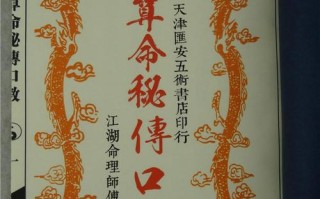 天津匯安五術書店印行
算命秘傳口
江湖命理師傅
算命秘傳口教